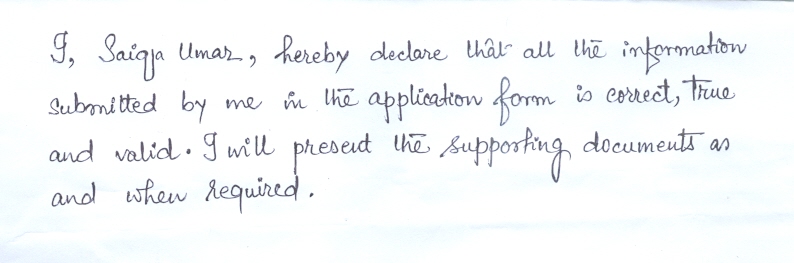 I, Saiqja Umar, hereby declare that all the information
submitted by me in the application form is correct, True
and valid. I will present the supporting documents as
and when required.